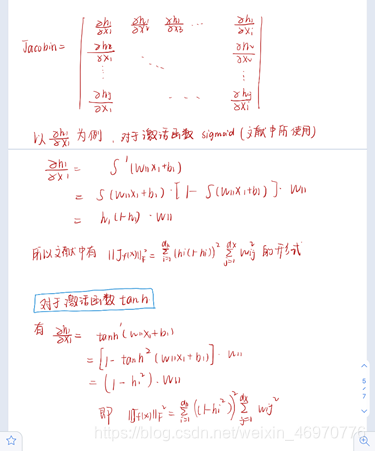 ∂h₁/∂x₁ ∂h₁/∂x₂ ∂h₁/∂x₃ ... ∂h₁/∂xᵢ
Jacobin = ∂h₂/∂x₁ ... ∂h₂/∂xᵢ
⋮ ⋮
∂hⱼ/∂x₁ ... ∂hⱼ/∂xᵢ
以 ∂h₁/∂x₁ 为例,对于激活函数 sigmoid (文献中所使用)
∂h₁/∂x₁ = S'(w₁₁x₁+b₁)
= S(w₁₁x₁+b₁)·[1-S(w₁₁x₁+b₁)]·w₁₁
= h₁(1-h₁)·w₁₁
所以文献中有 ||Jf(x)||²F = Σ(hi(1-hi))² Σ wij² 的形式
对于激活函数tanh
有 ∂h₁/∂x₁ = tanh'(w₁₁x₁+b₁)
= [1-tanh²(w₁₁x₁+b₁)]·w₁₁
= (1-h₁²)·w₁₁
即 ||Jf(x)||²F = Σ((1-hi²))² Σ wij²
5
/
7
https://blog.csdn.net/weixin_46970778